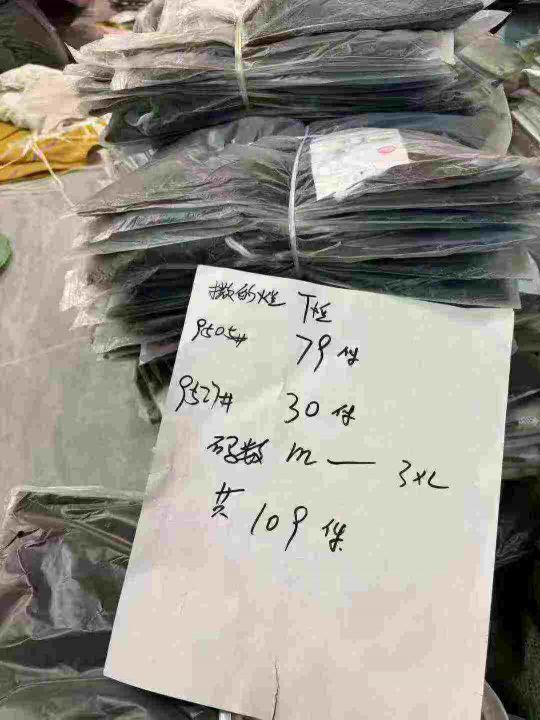 9505# 79件
9527# 30件
码数 m — 3XL
共 109 件